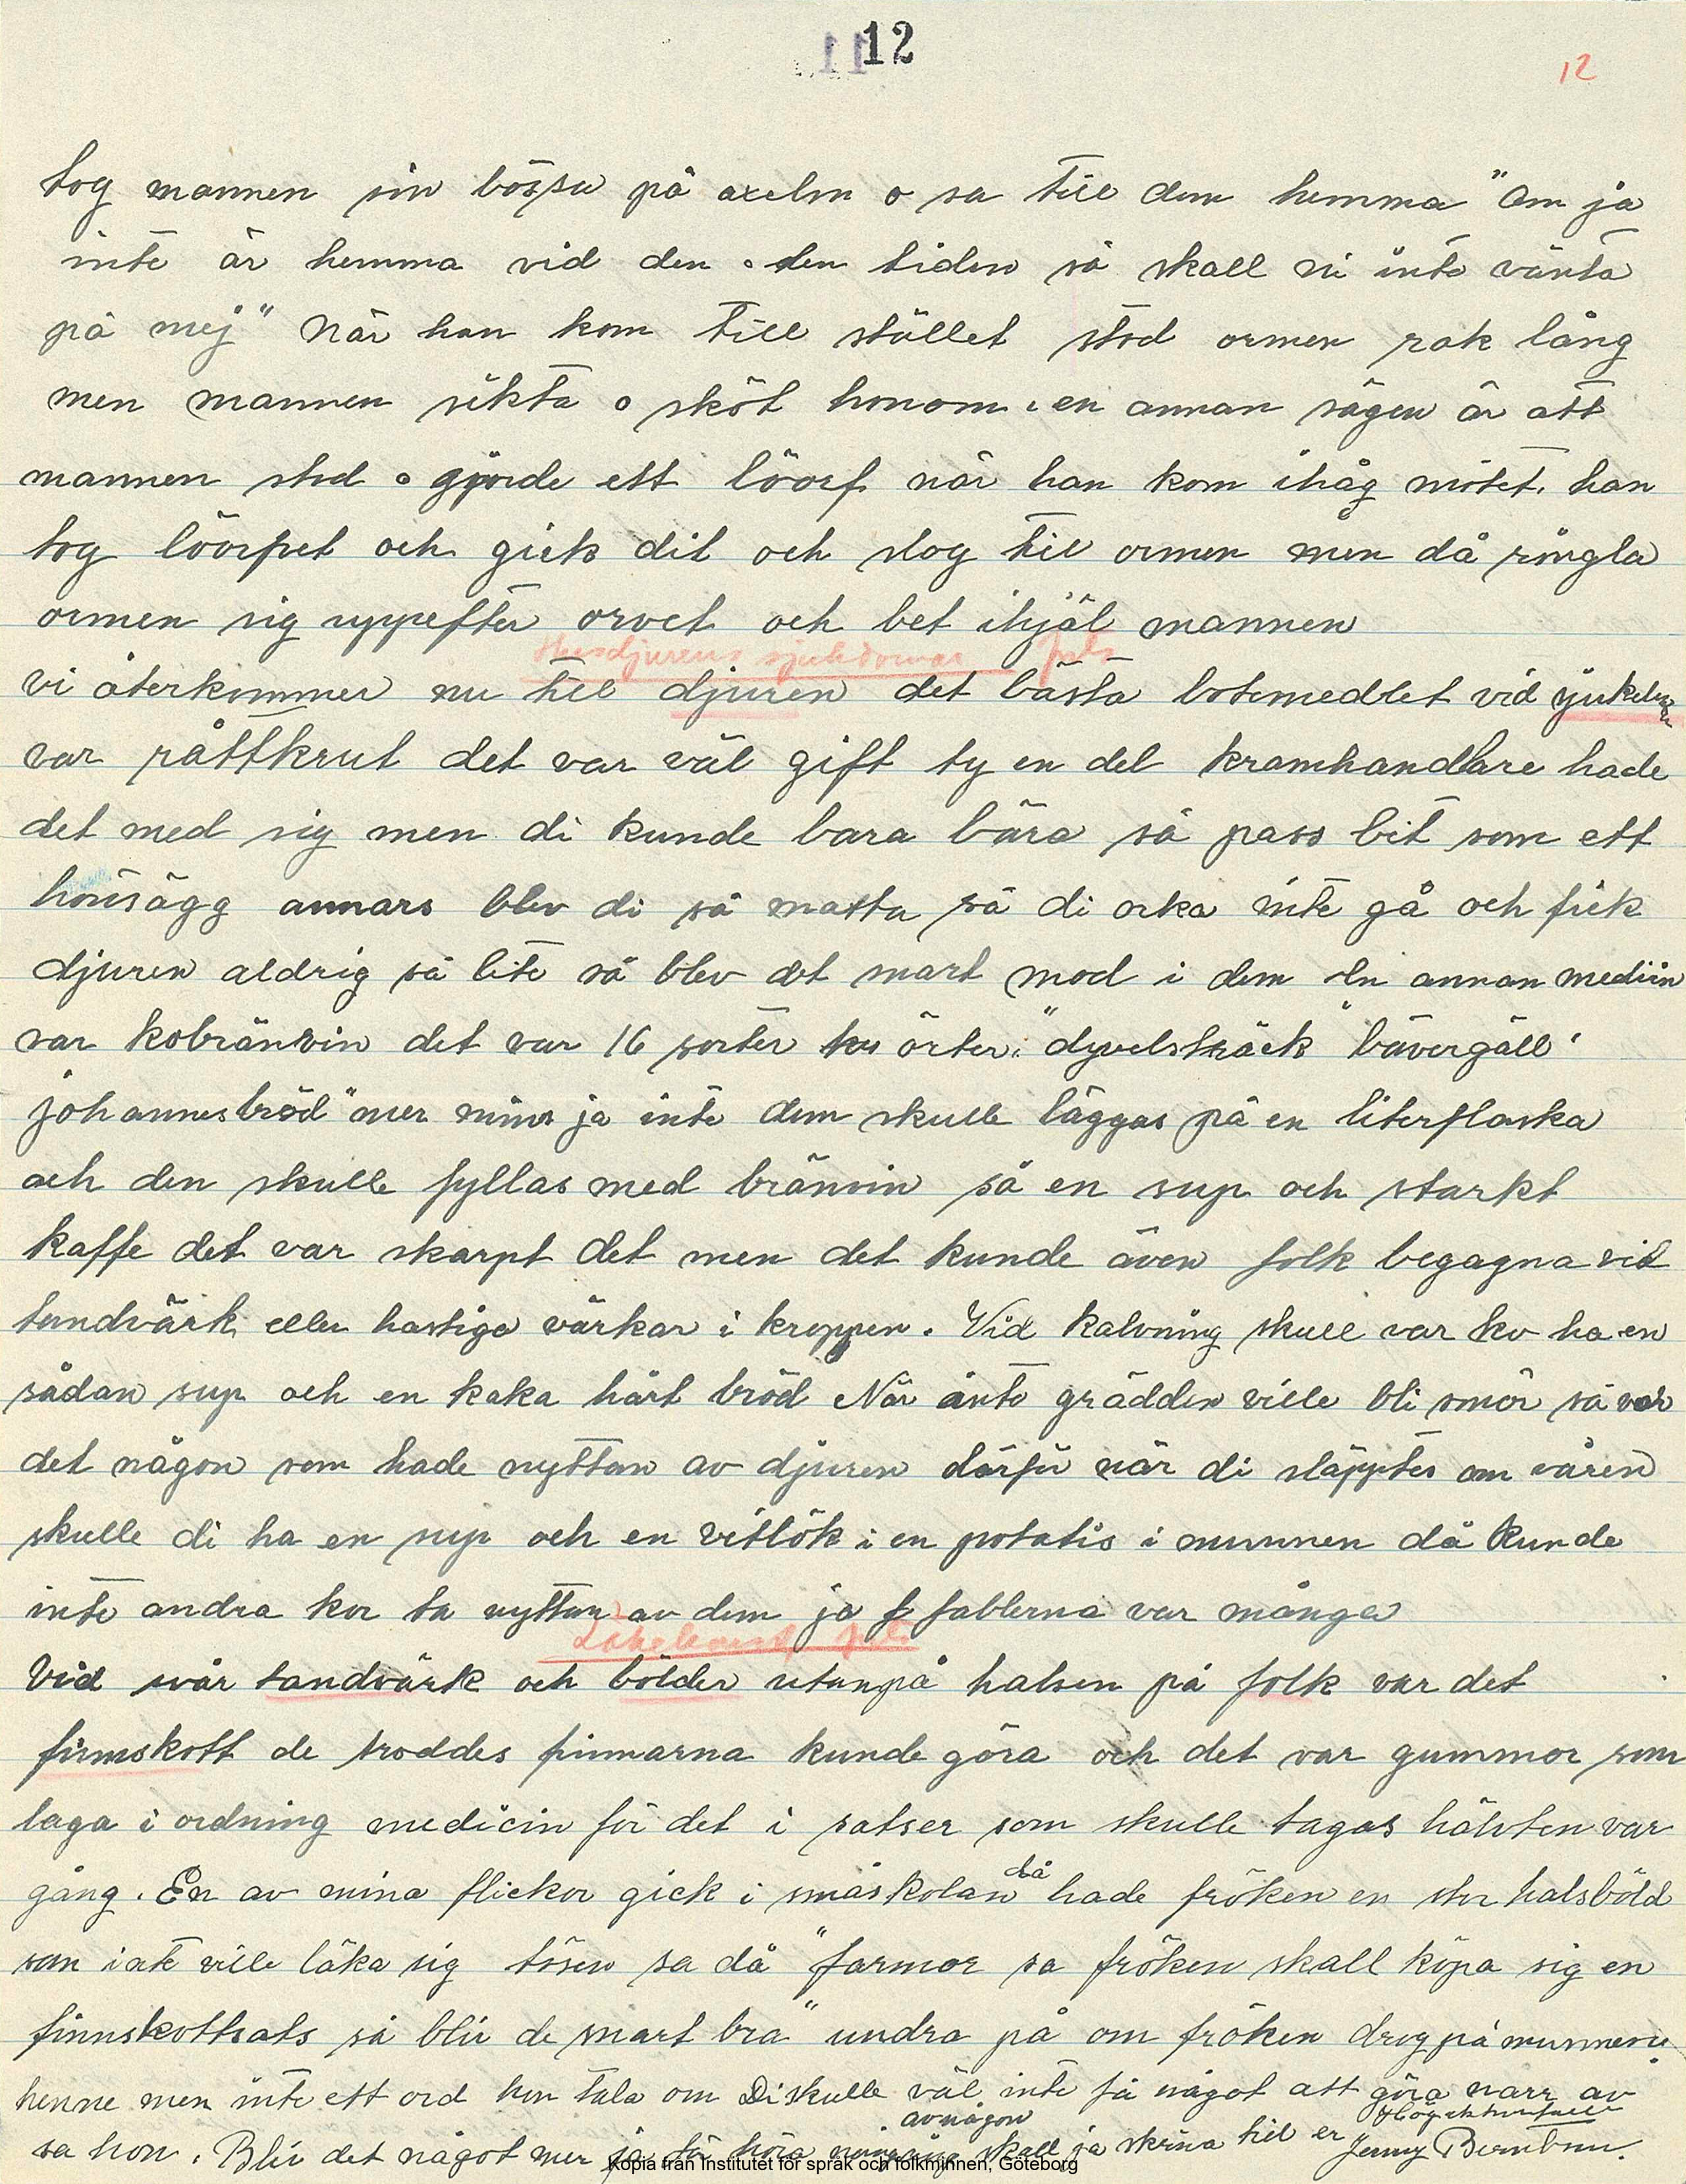 12
12
tog mannen sin bössa på axeln o sa till dem hemma "om ja
inte är hemma vid den o den tiden så skall ni inte vänta
på mej" När han kom till stället stod ormen rak lång
men mannen sikta o sköt honom. en annan sägen är att
mannen stod o gjorde ett löorf när han kom ihåg mötet. han
tog löorfvet och gick dit och slog till ormen men då ringla
ormen sig uppefter orvet och bet ihjäl mannen
Husdjurens sjukdomar
vi återkommer nu till djuren det bästa botemedlet vid
var råttkrut det var väl gift ty en del kramhandlare hade
det med sig men di kunde bara bära så pass bit som ett
hönsägg annars blev di så matta så di orka inte gå och fick
djuren aldrig så lite så blev det snart mod i dem En annan medisin
var kobränvin det var 16 sorter örter. "dyvelsträck" "bävergäll"
johannesbröd" mer mins ja inte dem skulle läggas på en literflaska
och den skulle fyllas med bränvin så en sup och starkt
kaffe det var skarpt det men det kunde även folk begagna vid
tandvärk eller hastiga värkar i kroppen. Vid kalvning skull var ko ha en
sådan sup och en kaka hårt bröd När inte grädden ville bli smör så var
det någon som hade nyttan av djuren därför när di släpptes om våren
skulle di ha en sup och en vitlök i en potatis i munnen då kunde
inte andra kor ta nyttan av dem ja f fablerna var många
Läkekonst
Vid svår tandvärk och bölder utanpå halsen på folk var det
finnskott de troddes finnarna kunde göra och det var gummor som
laga i ordning medicin för det i satser som skulle tagas hälvten var
gång. En av mina flickor gick i småskolan då hade fröken en stor halsböld
som inte ville läka sig tösen sa då "farmor sa fröken skall köpa sig en
finnskottsats så blir de snart bra" undra på om fröken drog på munnen
henne men inte ett ord hon tala om Di skulle väl inte få något att göra narr av
sa hon. Blir det något mer ja får höra av någon skall ja skriva till er Högaktningsfullt
Jenny Berntson.
Kopia från Institutet för språk och folkminnen, Göteborg